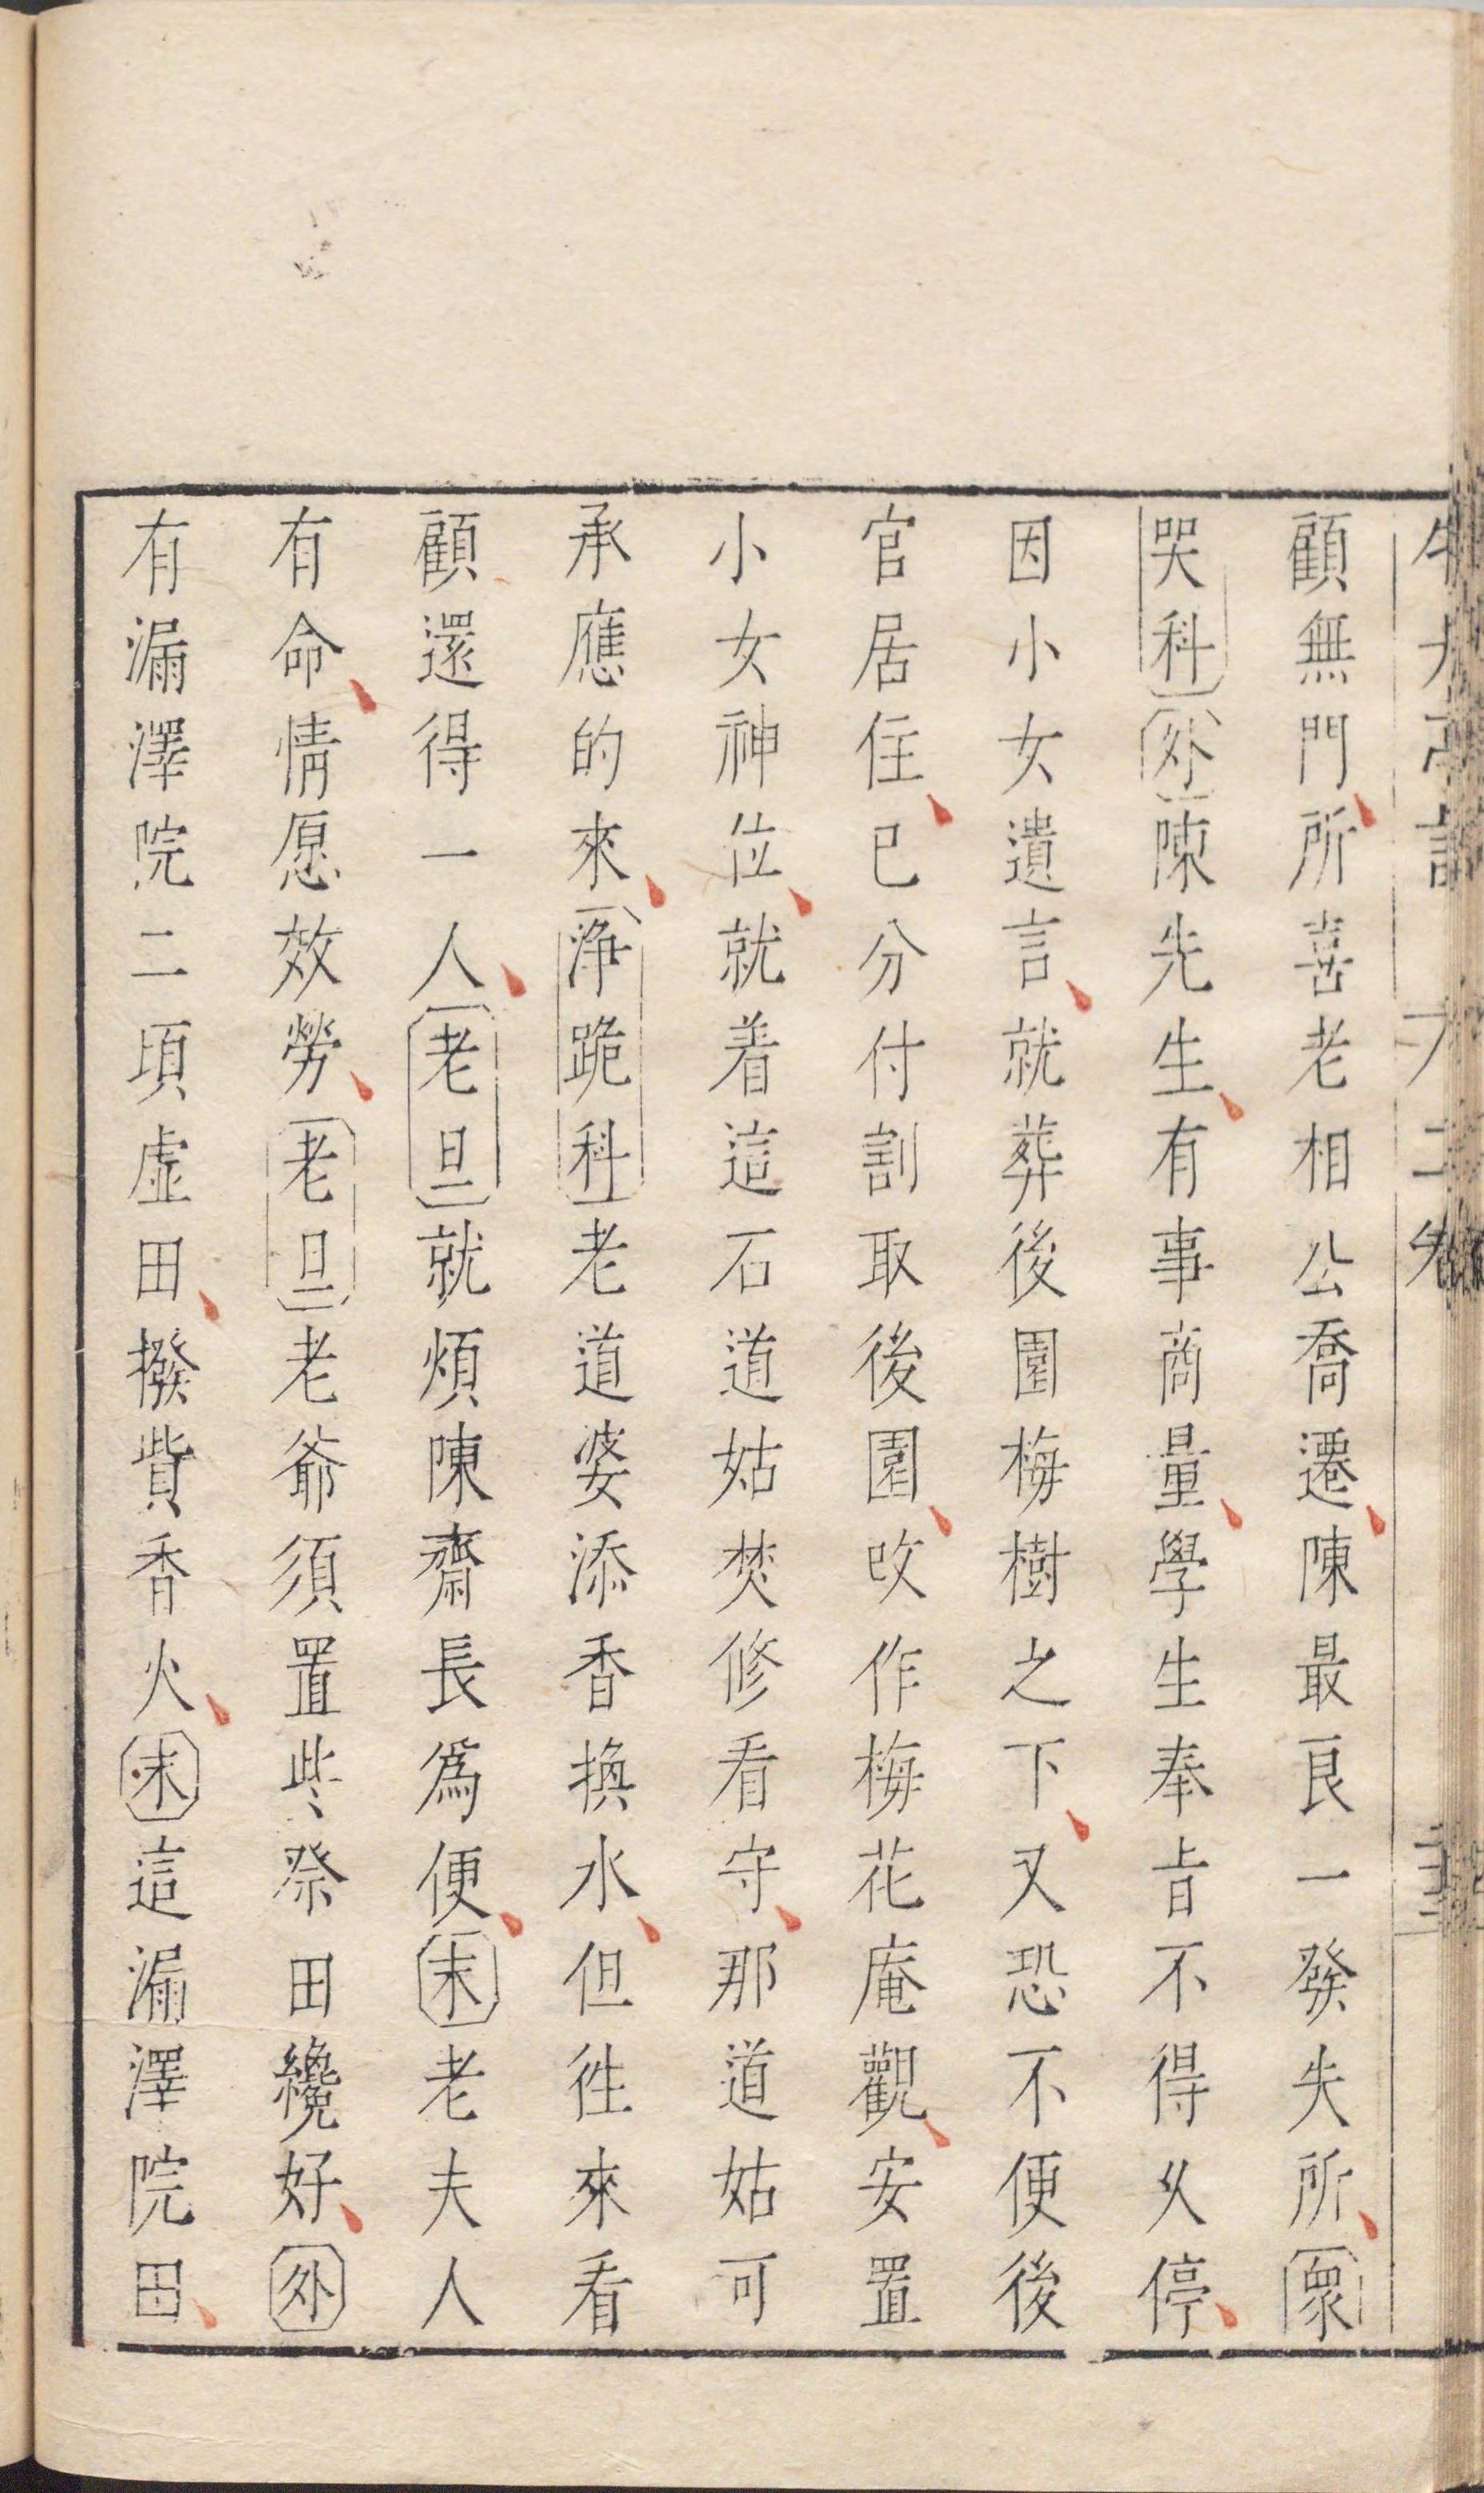 顧無門所喜老相公喬遷陳最良一發失所衆
哭科外陳先生有事商量學生奉旨不得久停
因小女遺言就葬後園梅樹之下又恐不便後
官居住已分付割取後園改作梅花庵觀安置
小女神位就着這石道姑焚修看守那道姑可
承應的來淨跪科老道婆添香換水但往來看
顧還得一人老旦就煩陳齋長爲便末老夫人
有命情愿效勞老旦老爺須置些祭田纔好外
有漏澤院二頃虛田撥貲香火末這漏澤院田